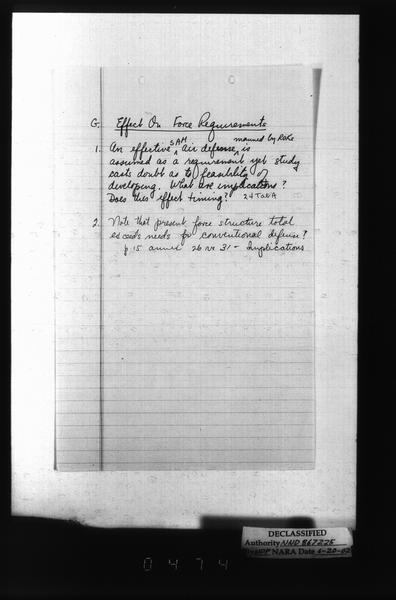 G. Effect On Force Requirements
SAM manned by ROKs
1. An effective ^ air defense ^ is
assumed as a requirement yet study
casts doubt as to feasibility of
developing. What are implications?
Does this effect timing? 24 Tab A
2. Note that present force structure total
exceeds needs for conventional defense?
p 15 annex 26 vs 31 - Implications
DECLASSIFIED
Authority NND 867225
NARA Date 6-20-02
0474